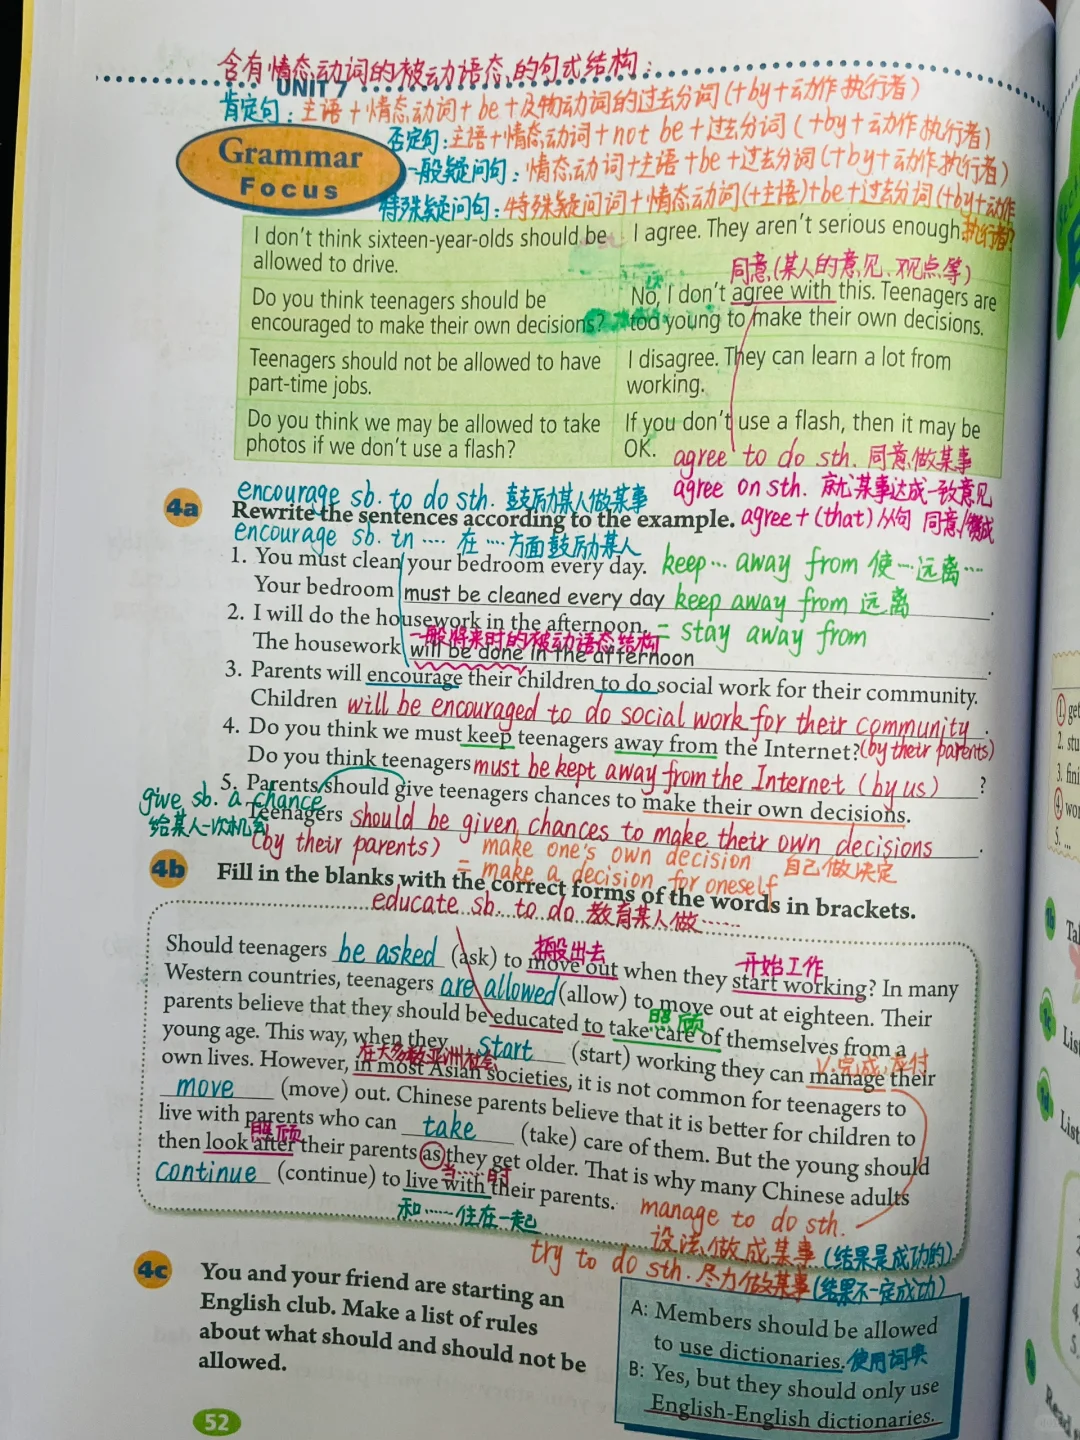 含有情态动词的被动语态的句式结构:
UNIT 7
肯定句:主语+情态动词+be+及物动词的过去分词(+by+动作执行者)
否定句:主语+情态动词+not be+过去分词(+by+动作执行者)
Grammar
Focus
一般疑问句:情态动词+主语+be+过去分词(+by+动作执行者)
特殊疑问句:特殊疑问词+情态动词(+主语)+be+过去分词(+by+动作
执行者)?
I don't think sixteen-year-olds should be
allowed to drive.
I agree. They aren't serious enough
同意(某人的意见、观点等)
Do you think teenagers should be
encouraged to make their own decisions?
No, I don't agree with this. Teenagers are
too young to make their own decisions.
Teenagers should not be allowed to have
part-time jobs.
I disagree. They can learn a lot from
working.
Do you think we may be allowed to take
photos if we don't use a flash?
If you don't use a flash, then it may be
OK.
agree to do sth. 同意做某事
encourage sb. to do sth. 鼓励某人做某事
agree on sth. 就某事达成一致意见
4a Rewrite the sentences according to the example.
agree+(that)从句 同意/赞成
encourage sb. in …… 在…方面鼓励某人
1. You must clean your bedroom every day.
keep… away from 使…远离…
Your bedroom must be cleaned every day.
keep away from 远离
2. I will do the housework in the afternoon.
= stay away from
一般将来时的被动语态结构
The housework will be done in the afternoon.
3. Parents will encourage their children to do social work for their community.
Children will be encouraged to do social work for their community.
4. Do you think we must keep teenagers away from the Internet?
(by their parents)
Do you think teenagers must be kept away from the Internet (by us)?
5. Parents should give teenagers chances to make their own decisions.
give sb. a chance
给某人一次机会
Teenagers should be given chances to make their own decisions.
(by their parents)
make one's own decision 自己做决定
= make a decision for oneself
4b Fill in the blanks with the correct forms of the words in brackets.
educate sb. to do 教育某人做……
搬出去
开始工作
Should teenagers be asked (ask) to move out when they start working? In many
Western countries, teenagers are allowed (allow) to move out at eighteen. Their
照顾
parents believe that they should be educated to take care of themselves from a
young age. This way, when they start (start) working they can manage their
在大多数亚洲社会
v.完成;应付
own lives. However, in most Asian societies, it is not common for teenagers to
move (move) out. Chinese parents believe that it is better for children to
live with parents who can take (take) care of them. But the young should
照顾
then look after their parents as they get older. That is why many Chinese adults
当……时
continue (continue) to live with their parents.
和……住在一起
manage to do sth.
设法做成某事(结果是成功的)
try to do sth. 尽力做某事(结果不一定成功)
4c You and your friend are starting an
English club. Make a list of rules
about what should and should not be
allowed.
A: Members should be allowed
to use dictionaries. 使用词典
B: Yes, but they should only use
English-English dictionaries.
52
① get
2. stu
3. fini
④ wor
5. ...
4b Ta
1c
List
1d
List
Read